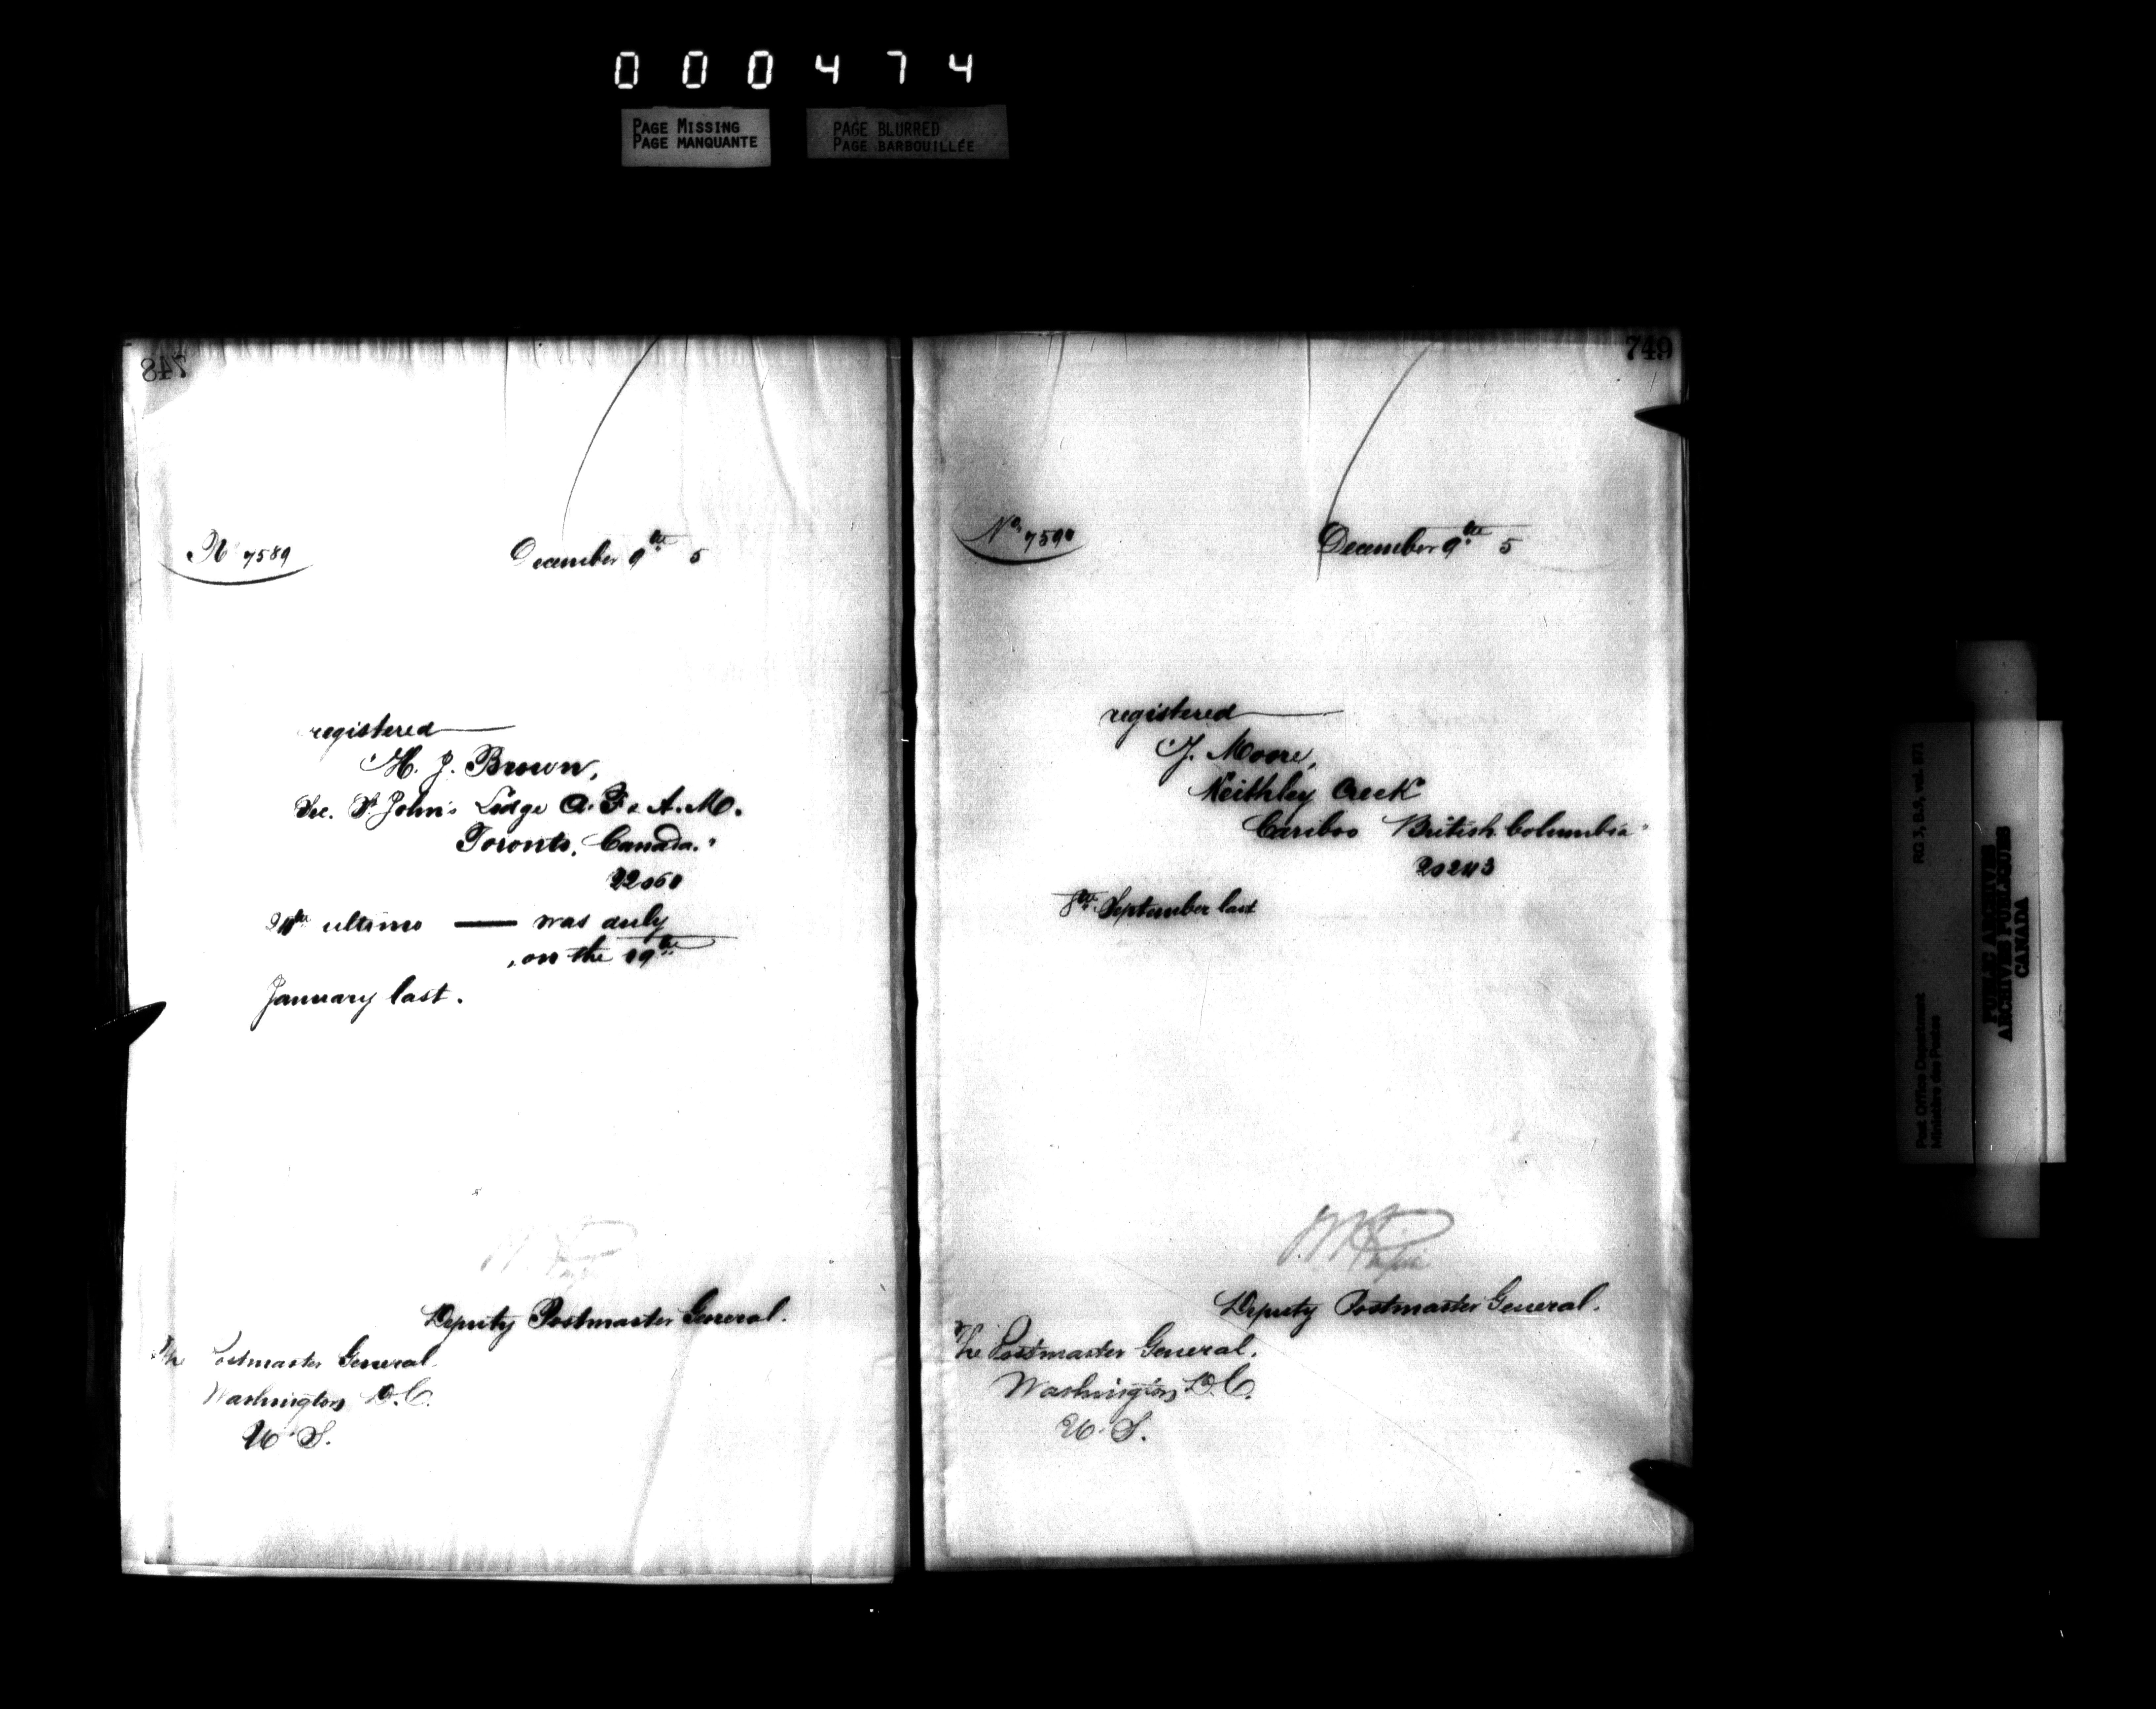 000474
PAGE MISSING
PAGE MANQUANTE
PAGE BLURRED
PAGE BARBOUILLÉE
748
No 7589
December 9th 5
registered
"H. J. Brown,
Sec. St. John's Lodge A. F. & A. M.
Toronto, Canada."
22060
ultimo — was duly
on the 19th
January last.
Deputy Postmaster General.
The Postmaster General.
Washington D.C.
U.S.
749
No. 7590
December 9th 5
registered
"J. Moore,
Keithley Creek
Cariboo British Columbia"
20243
8th September last
Deputy Postmaster General.
The Postmaster General.
Washington D.C.
U.S.
RG 3, B.9, vol. 871
Post Office Department
Ministère des Postes
PUBLIC ARCHIVES
ARCHIVES PUBLIQUES
CANADA